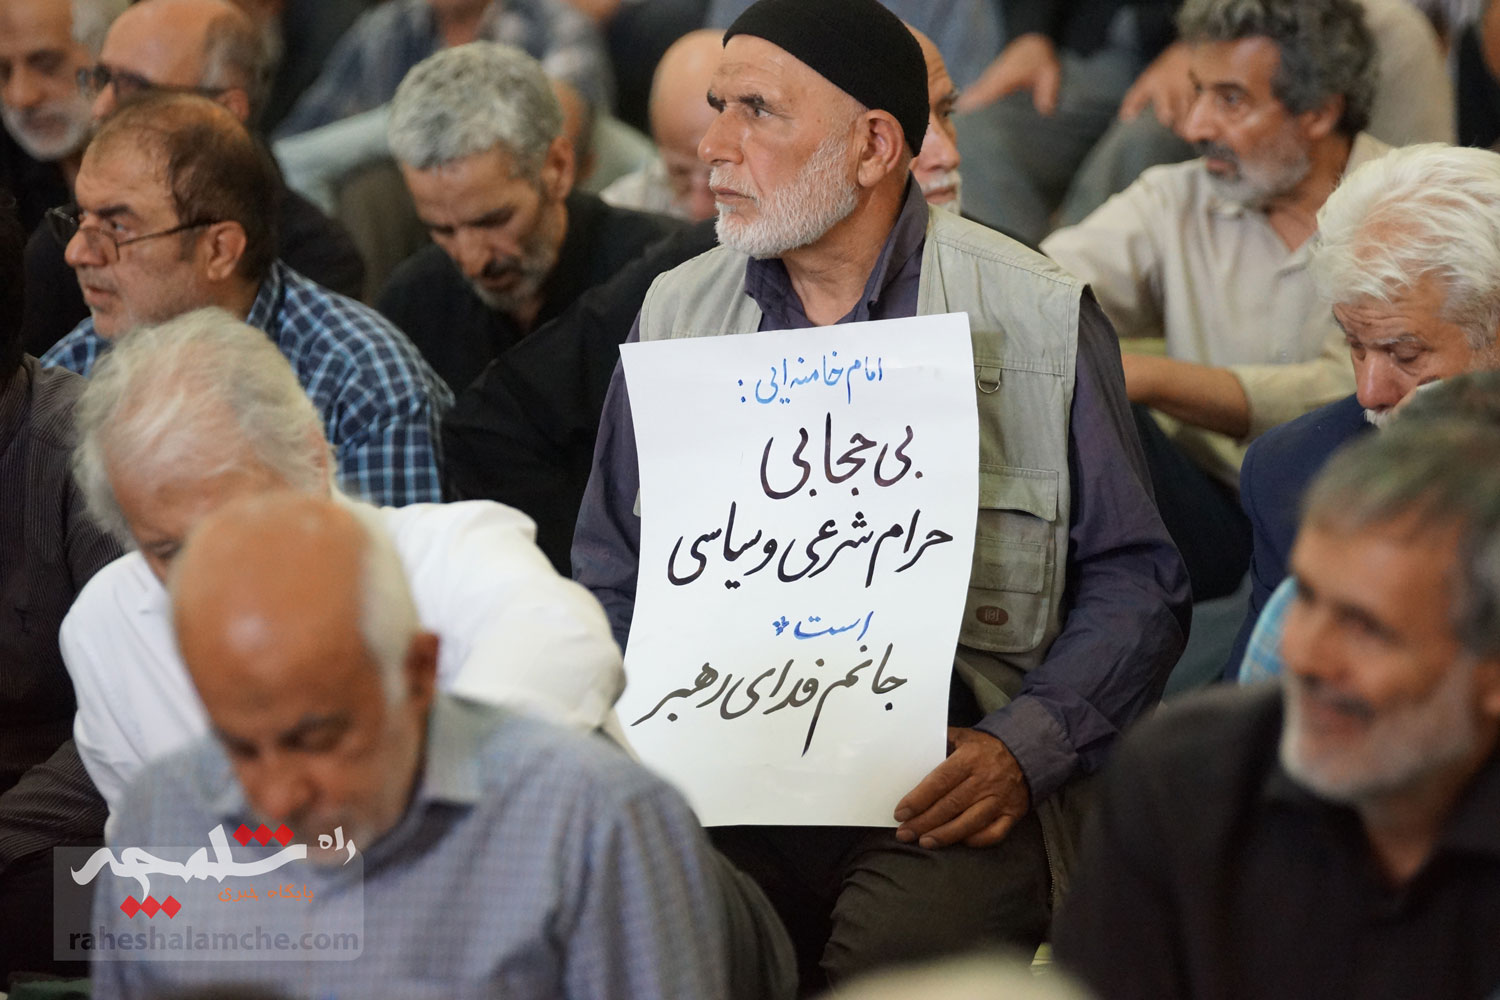 امام خامنه‌ایی :
بی حجابی
حرام شرعی و سیاسی
است*
جانم فدای رهبر
راه شلمچه
پایگاه خبری
raheshalamche.com